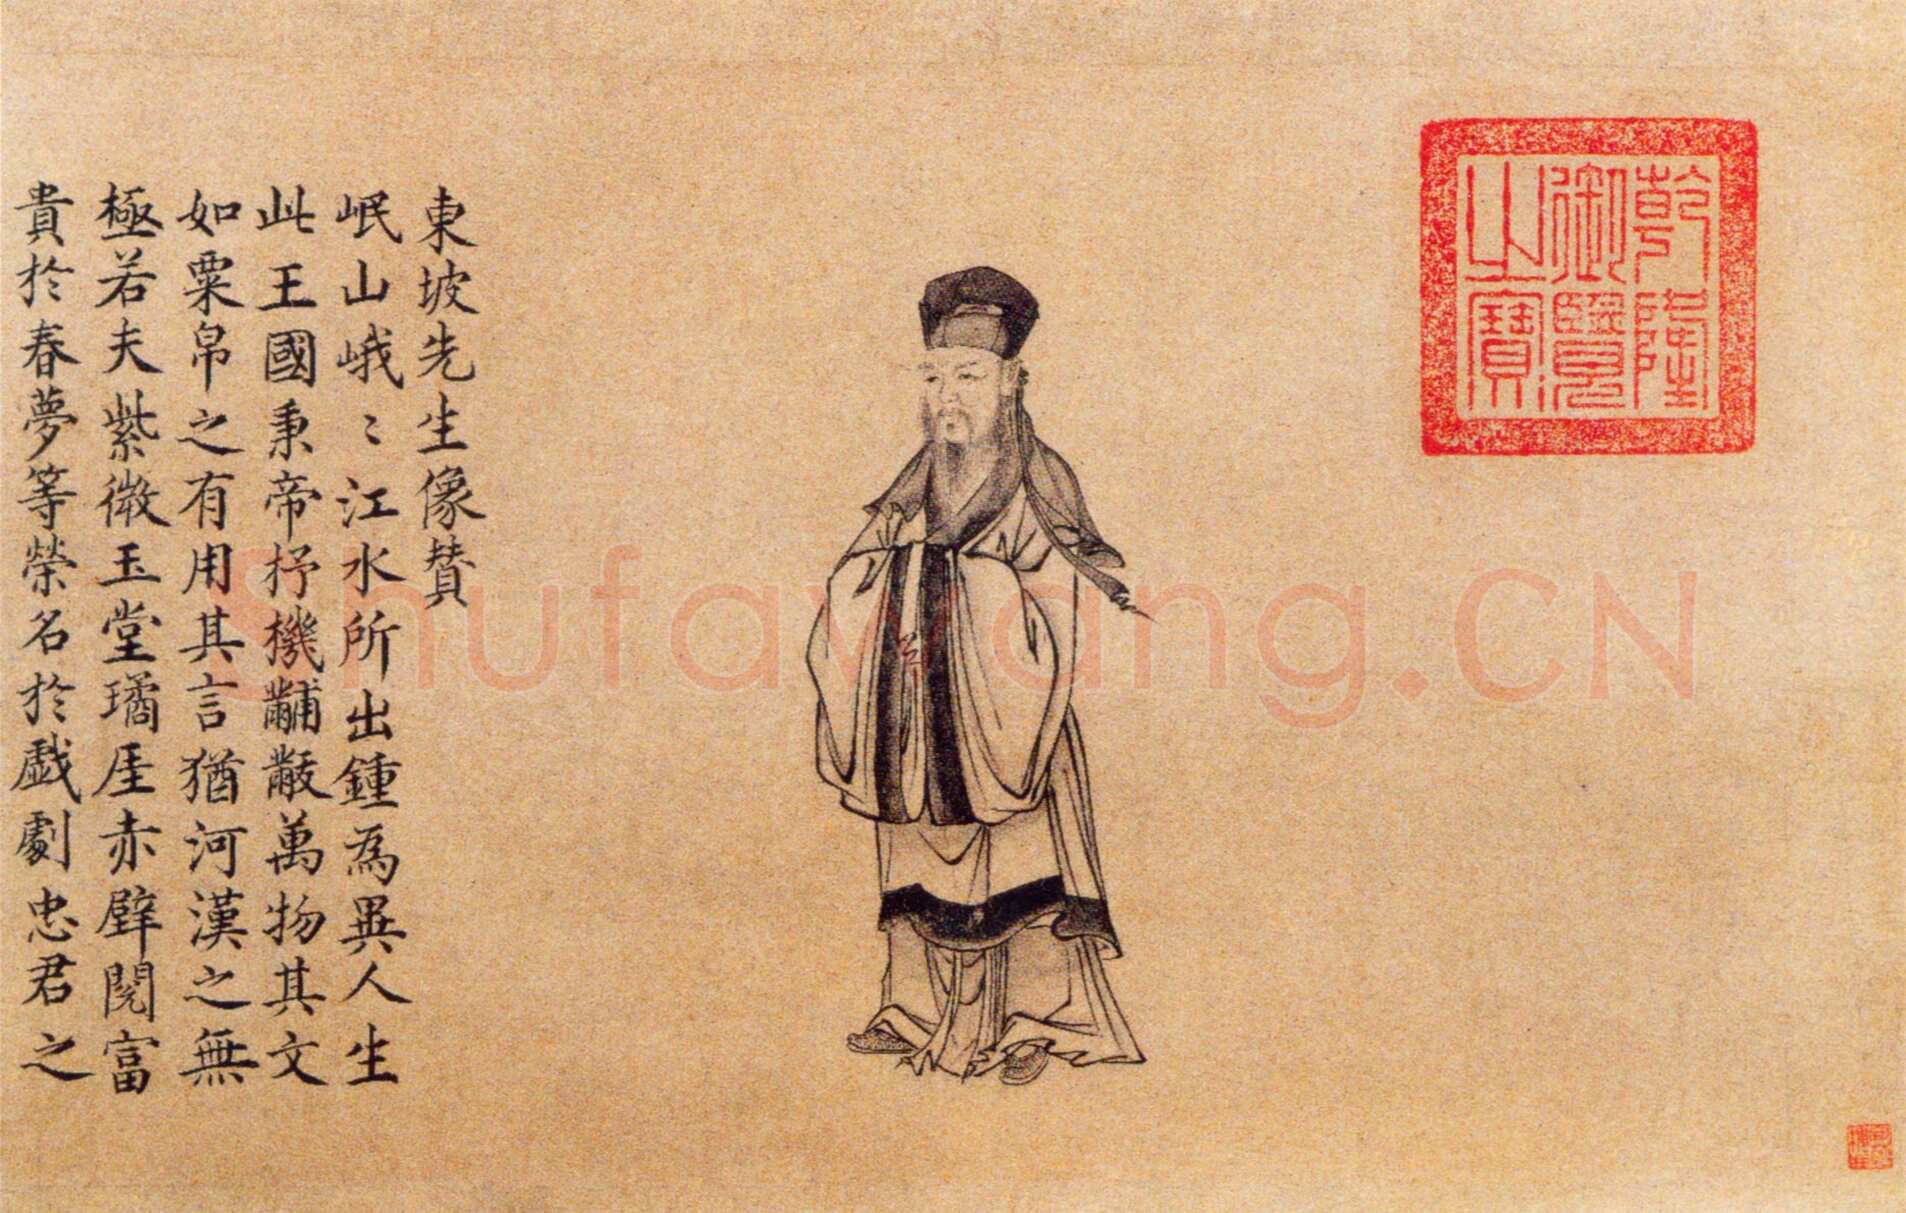 東坡先生像贊
岷山峨〻江水所出鍾為異人生
此王國秉帝杼機黼黻萬物其文
如粟帛之有用其言猶河漢之無
極若夫紫微玉堂璚厓赤壁閱富
貴於春夢等榮名於戲劇忠君之
乾隆
御覽
之寶
Shufawang.CN